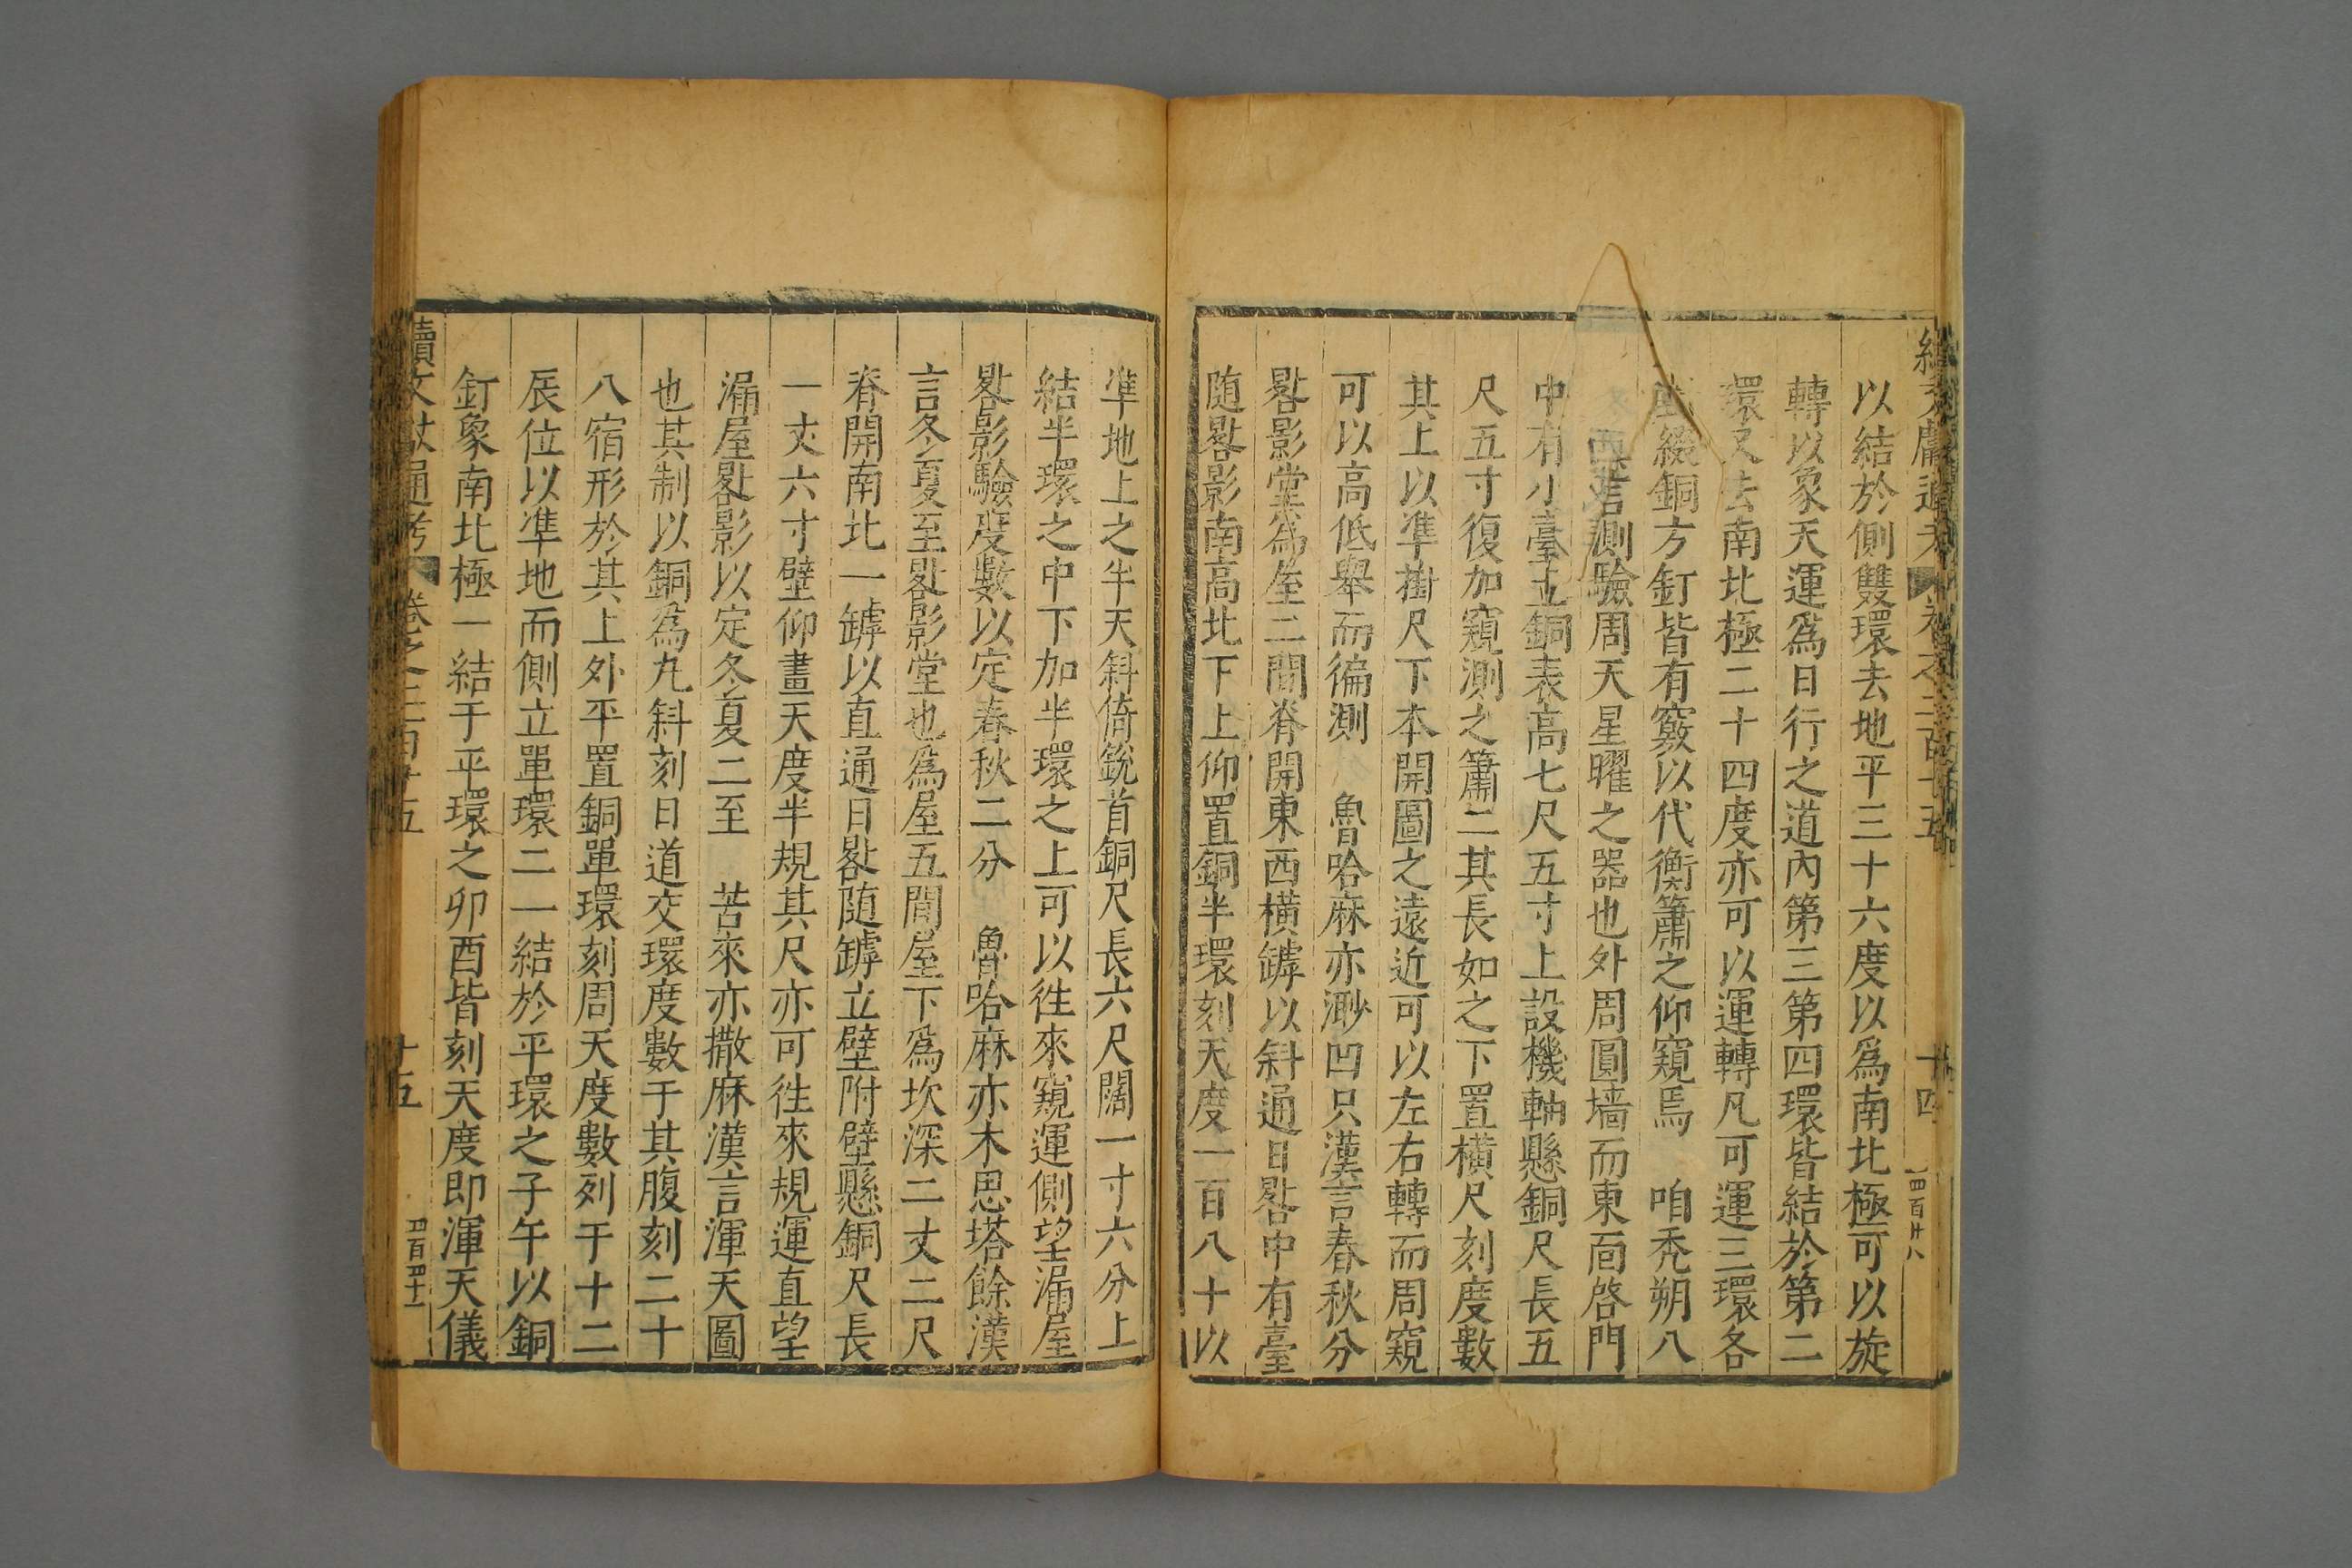 續文獻通考 卷之二百十五 十四
以結於側雙環去地平三十六度以爲南北極可以旋
轉以象天運爲日行之道內第三第四環皆結於第二
環又去南北極二十四度亦可以運轉凡可運三環各
對綴銅方釘皆有竅以代衡簫之仰窺焉 咱禿朔八
西漢言測驗周天星曜之器也外周圓墙而東面啓門
中有小臺立銅表高七尺五寸上設機軸懸銅尺長五
尺五寸復加窺測之簫二其長如之下置橫尺刻度數
其上以準掛尺下本開圖之遠近可以左右轉而周窺
可以高低舉而徧測 魯哈麻亦渺凹只漢言春秋分
晷影堂爲屋二間脊開東西橫罅以斜通日晷中有臺
随晷影南高北下上仰置銅半環刻天度一百八十以
凖地上之半天斜倚銳首銅尺長六尺闊一寸六分上
結半環之中下加半環之上可以徃來窺運側望漏屋
晷影驗度數以定春秋二分 魯哈麻亦木思塔餘漢
言冬夏至晷影堂也爲屋五間屋下爲坎深二丈二尺
脊開南北一罅以直通日晷随罅立壁附壁懸銅尺長
一丈六寸壁仰畫天度半規其尺亦可徃來規運直望
漏屋晷影以定冬夏二至 苦來亦撒麻漢言渾天圖
也其制以銅爲丸斜刻日道交環度數于其腹刻二十
八宿形於其上外平置銅單環刻周天度數列于十二
辰位以凖地而側立單環二一結於平環之子午以銅
釘象南北極一結于平環之卯酉皆刻天度即渾天儀
續文獻通考 卷之二百十五 十五